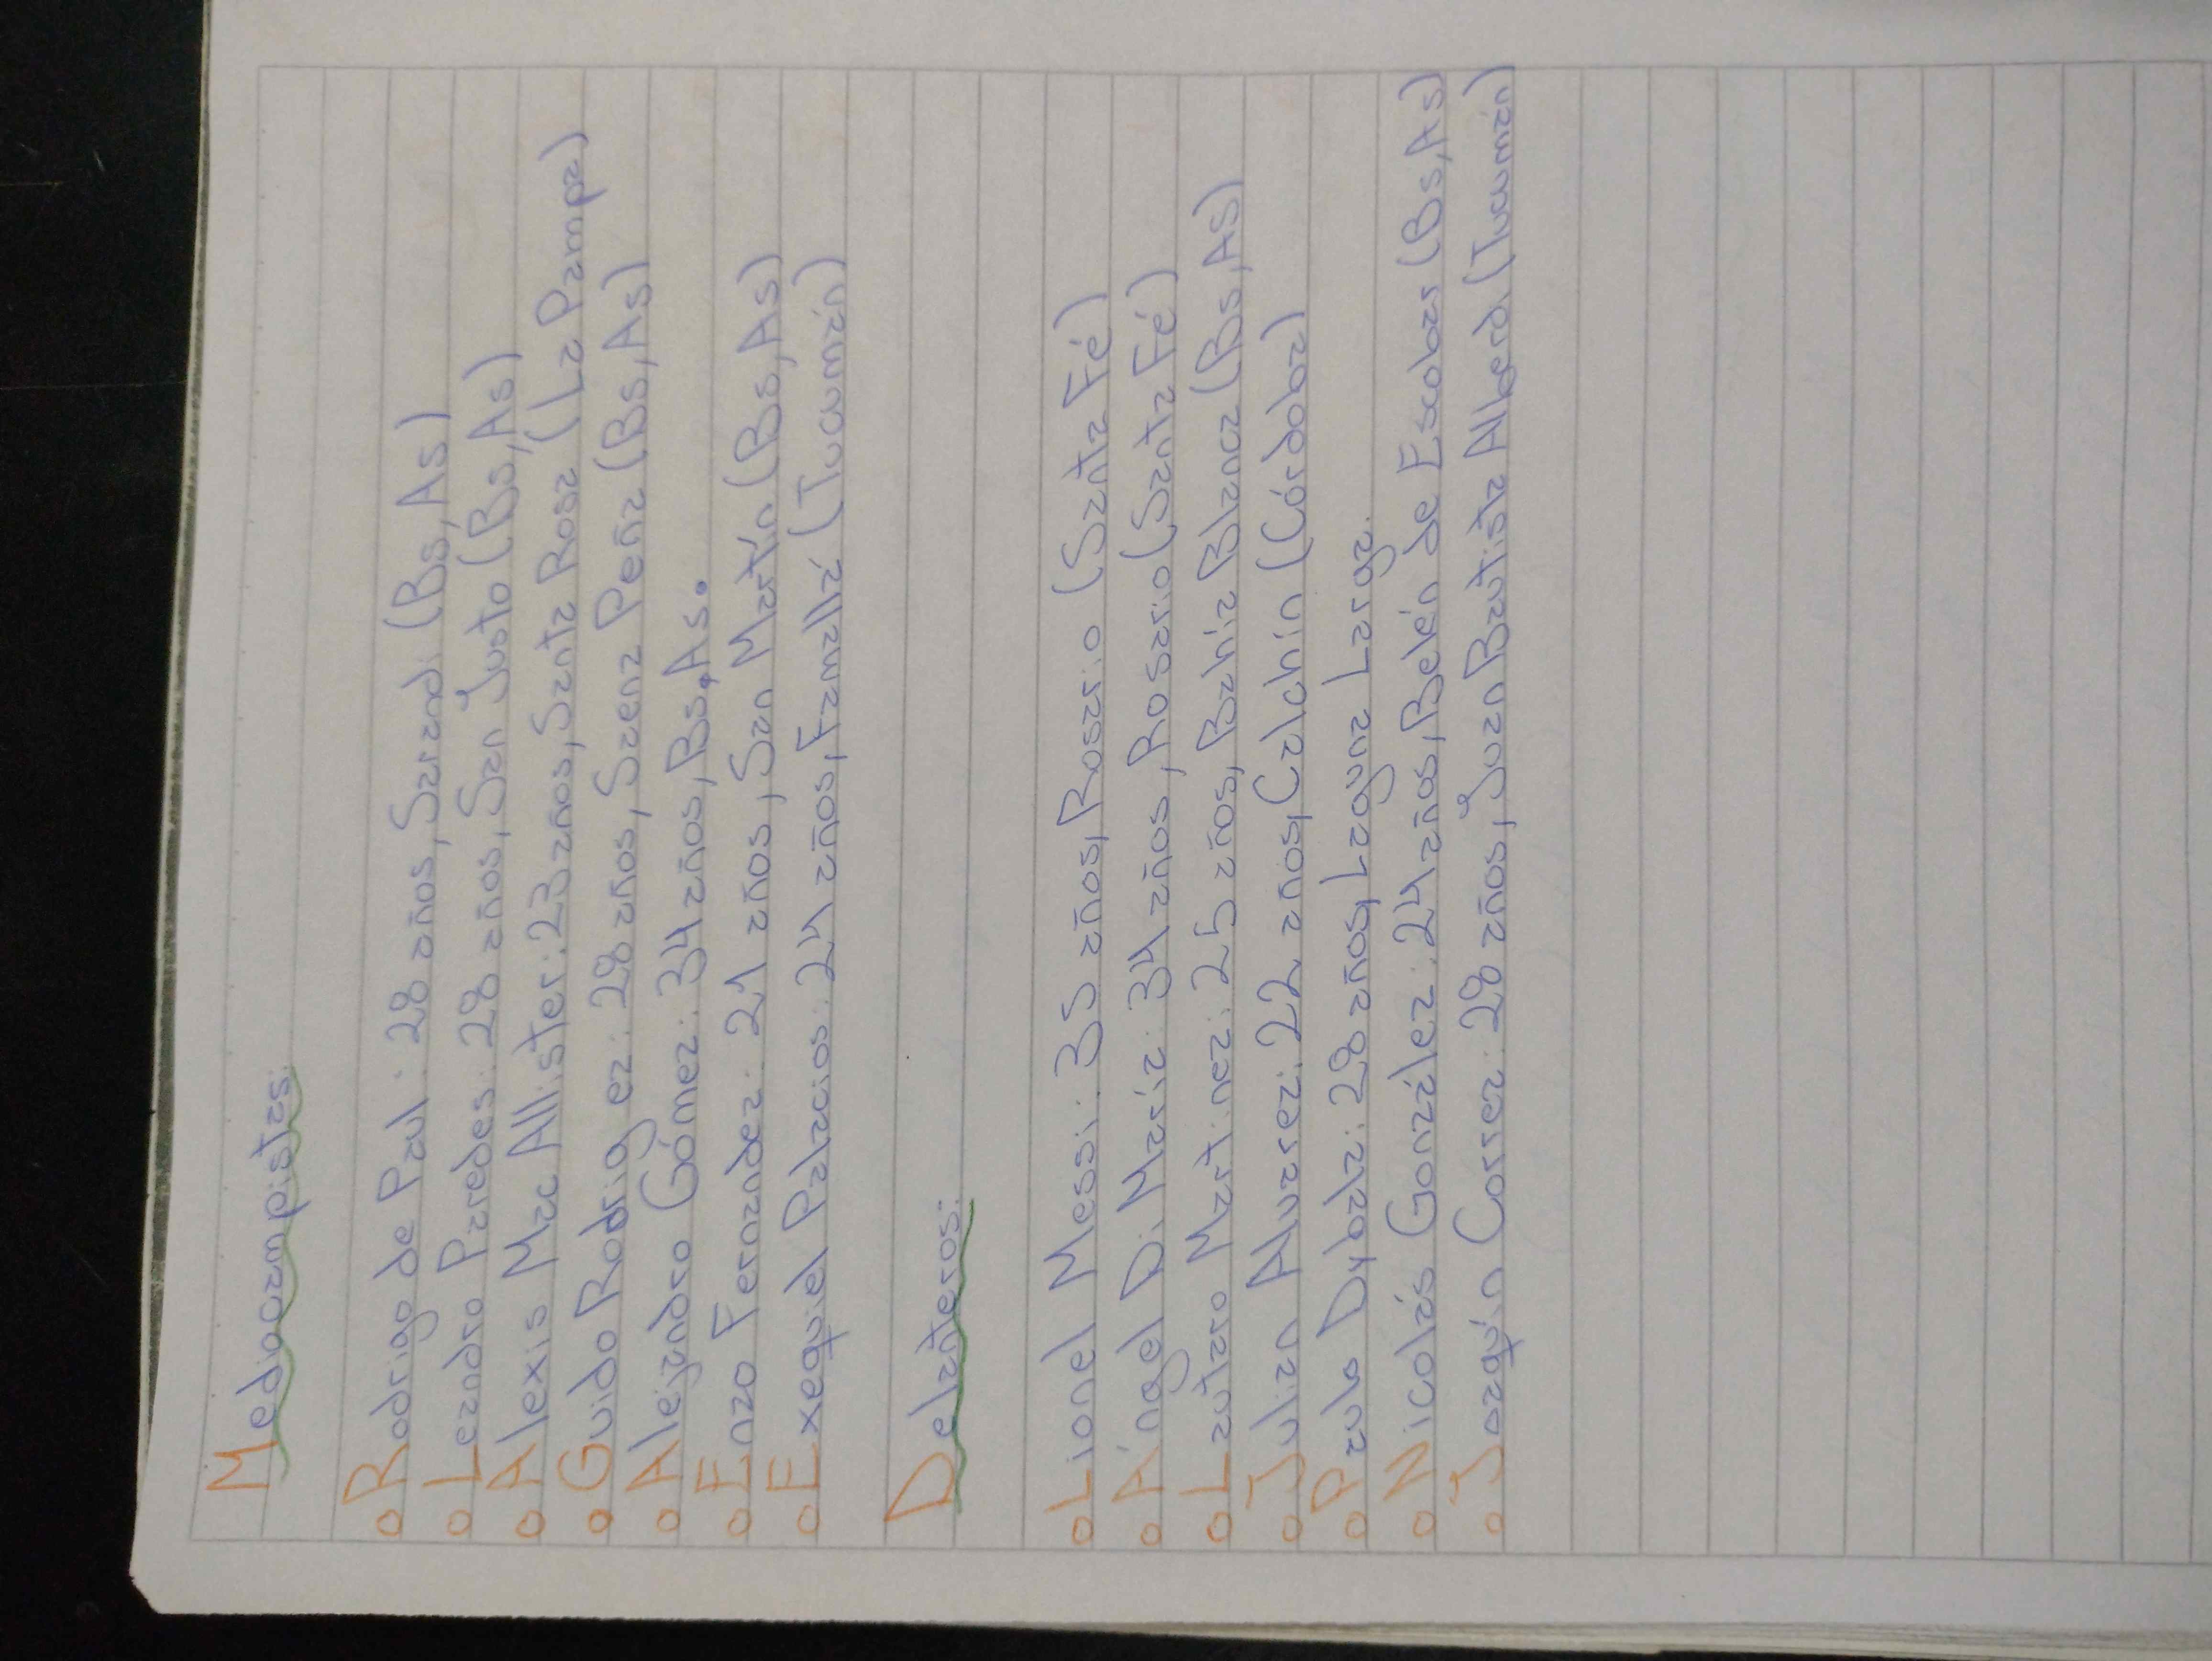 Mediocampistas:
Rodrigo de Paul: 28 años, Sarandi (Bs, As)
Leandro Paredes: 28 años, San Justo (Bs, As)
Alexis Mac Allister: 23 años, Santa Rosa (La Pampa)
Guido Rodrig ez: 28 años, Saenz Peña (Bs, As)
Alejandro Gómez: 34 años, Bs, As.
Enzo Fernandez: 21 años, San Martín (Bs, As)
Exequiel Palacios: 24 años, Famallá (Tucumán)
Delanteros:
Lionel Messi: 35 años, Rosario (Santa Fé)
Ángel Di María: 34 años, Rosario (Santa Fé)
Lautaro Martinez: 25 años, Bahía Blanca (Bs, As)
Julian Alvarez: 22 años, Calchin (Córdoba)
Paulo Dybala: 28 años, Laguna Larga.
Nicolás González: 24 años, Belén de Escobar (Bs, As)
Joaquín Correa: 28 años, Juan Bautista Alberdi (Tucumán)